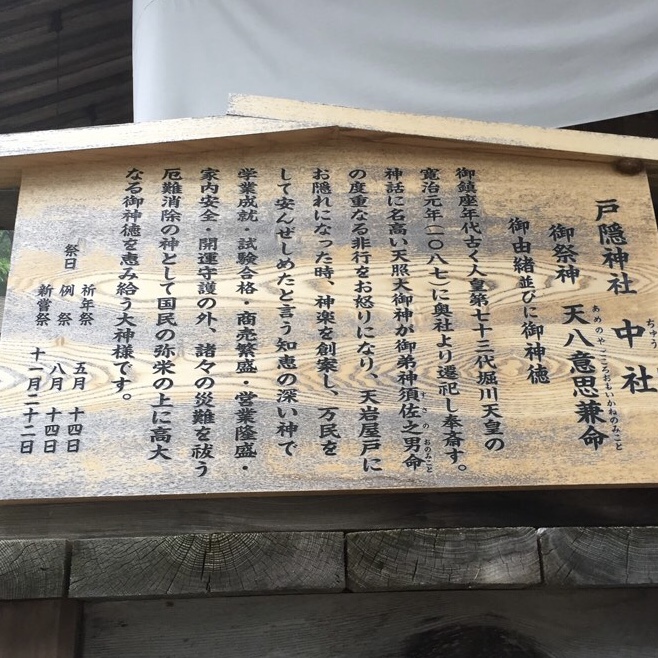 戸隠神社 中社
ちゅう
御祭神 天八意思兼命
あめのやごころおもいかねのみこと
御由緒並びに御神徳
御鎮座年代古く人皇第七十三代堀川天皇の
寛治元年(一〇八七)に奥社より遷祀し奉斎す。
神話に名高い天照大御神が御弟神須佐之男命
すさのおのみこと
の度重なる非行をお怒りになり、天岩屋戸に
お隠れになった時、神楽を創案し、万民を
して安んぜしめたと言う知恵の深い神で
学業成就・試験合格・商売繁盛・営業隆盛・
家内安全・開運守護の外、諸々の災難を祓う
厄難消除の神として国民の弥栄の上に高大
なる御神徳を恵み給う大神様です。
祭日 祈年祭 五月 十四日
例祭 八月 十四日
新嘗祭 十一月二十二日